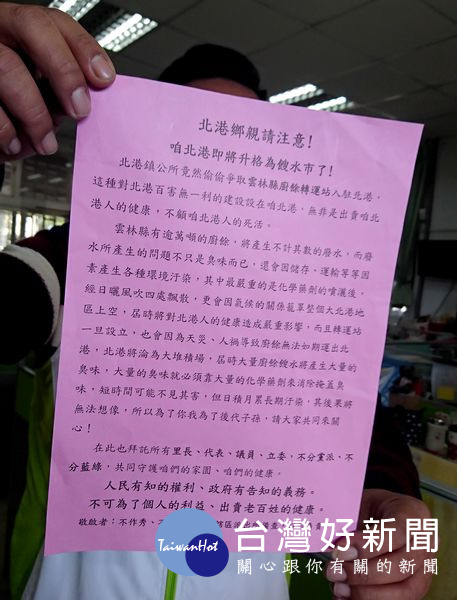 北港鄉親請注意!
咱北港即將升格為餿水市了!
北港鎮公所竟然偷偷爭取雲林縣廚餘轉運站入駐北港,
這種對北港百害無一利的建設設在咱北港,無非是出賣咱北
港人的健康,不顧咱北港人的死活。
雲林縣有逾萬噸的廚餘,將產生不計其數的廢水,而廢
水所產生的問題不只是臭味而已,還會因儲存、運輸等等因
素產生各種環境汙染,其中最嚴重的是化學藥劑的噴灑後,
經日曬風吹四處飄散,更會因氣候的關係籠罩整個大北港地
區上空,屆時將對北港人的健康造成嚴重影響,而且轉運站
一旦設立,也會因為天災、人禍導致廚餘無法如期運出北
港,北港將淪為大堆積場,屆時大量廚餘餿水將產生大量的
臭味,大量的臭味就必須靠大量的化學藥劑來消除掩蓋臭
味,短時間可能不見其害,但日積月累長期汙染,其後果將
無法想像,所以為了你我為了後代子孫,請大家共同來關
心!
在此也拜託所有里長、代表、議員、立委,不分黨派、不
分藍綠,共同守護咱們的家園、咱們的健康。
人民有知的權利、政府有告知的義務。
不可為了個人的利益、出賣老百姓的健康。
敬啟者:不作秀、
TaiwanHot
台灣好新聞
關心跟你有關的新聞